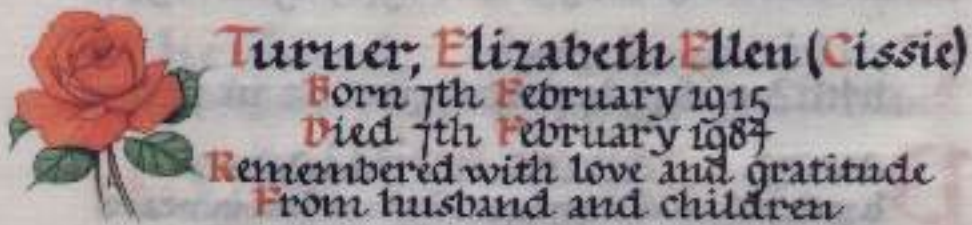 Turner, Elizabeth Ellen (Cissie)
Born 7th February 1915
Died 7th February 1987
Remembered with love and gratitude
From husband and children